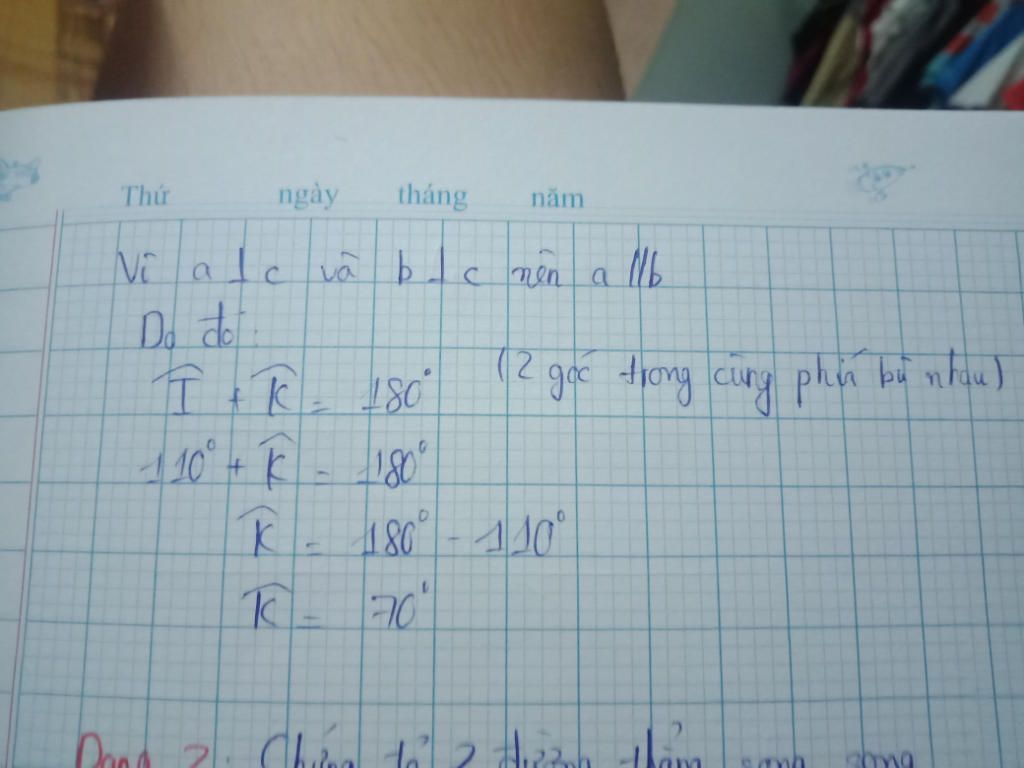 Thứ ngày tháng năm
Vì a ⊥ c và b ⊥ c nên a // b
Do đó:
Î + K̂ = 180° (2 góc trong cùng phía bù nhau)
110° + K̂ = 180°
K̂ = 180° - 110°
K̂ = 70°
Dạng 2: Chứng tỏ 2 đường thẳng song song